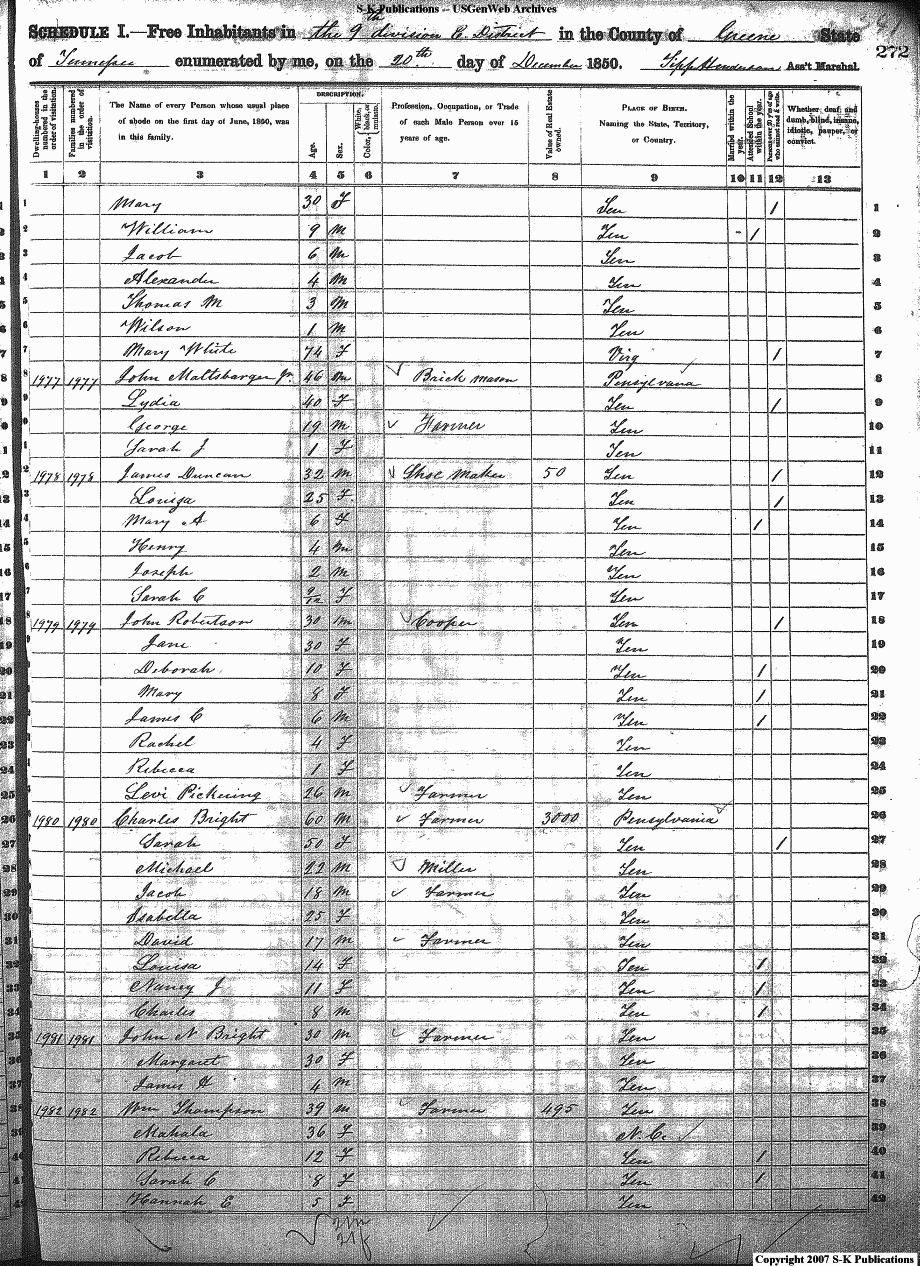 S-K Publications -- USGenWeb Archives
SCHEDULE I.—Free Inhabitants in the 9th division E. District in the County of Greene State
272
of Tennessee enumerated by me, on the 20th day of December 1850. Ass't Marshal.
Dwelling-houses numbered in the order of visitation. Families numbered in the order of visitation. The Name of every Person whose usual place of abode on the first day of June, 1850, was in this family. DESCRIPTION. Age. Sex. Color, White, black, or mulatto. Profession, Occupation, or Trade of each Male Person over 15 years of age. Value of Real Estate owned. PLACE OF BIRTH. Naming the State, Territory, or Country. Married within the year. Attended School within the year. Persons over 20 y'rs of age who cannot read & write. Whether deaf and dumb, blind, insane, idiotic, pauper, or convict.
1 2 3 4 5 6 7 8 9 10 11 12 13
1 Mary 30 F Ten / 1
2 William 9 M Ten - / 2
3 Jacob 6 M Ten 3
4 Alexander 4 M Ten 4
5 Thomas M 3 M Ten 5
6 Wilson 1 M Ten 6
7 Mary White 74 F Virg / 7
8 1977 1977 John Maltsbarger Jr. 46 M Brick mason Pensylvana 8
9 Lydia 40 F Ten / 9
10 George 19 M Farmer Ten 10
11 Sarah J 1 F Ten 11
12 1978 1978 James Duncan 32 M Shoe Maker 50 Ten / 12
13 Louiza 25 F Ten / 13
14 Mary A 6 F Ten / 14
15 Henry 4 M Ten 15
16 Joseph 2 M Ten 16
17 Sarah C 9/12 F Ten 17
18 1979 1979 John Robertson 30 M Cooper Ten / 18
19 Jane 30 F Ten 19
20 Deborah 10 F Ten / 20
21 Mary 8 F Ten / 21
22 James C 6 M Ten / 22
23 Rachel 4 F Ten 23
24 Rebecca 1 F Ten 24
25 Levi Pickering 26 M Farmer Ten 25
26 1980 1980 Charles Bright 60 M Farmer 3000 Pensylvania 26
27 Sarah 50 F Ten / 27
28 Michael 22 M Miller Ten 28
29 Jacob 18 M Farmer Ten 29
30 Isabella 25 F Ten 30
31 David 17 M Farmer Ten 31
32 Louisa 14 F Ten / 32
33 Nancy J 11 F Ten / 33
34 Charles 8 M Ten / 34
35 1981 1981 John N Bright 30 M Farmer Ten 35
36 Margaret 30 F Ten 36
37 James H 4 M Ten 37
38 1982 1982 Wm Thompson 39 M Farmer 495 Ten 38
39 Mahala 36 F N.C. 39
40 Rebecca 12 F Ten / 40
41 Sarah C 8 F Ten / 41
42 Hannah E 5 F Ten 42
21 m
21 f
Copyright 2007 S-K Publications